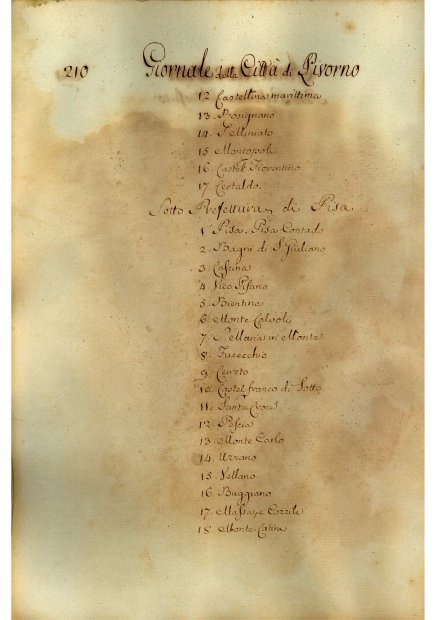 210 Giornale della Città di Livorno
12 Castellina marittima
13 Rosignano
14
15 Montopoli
16 Castel Fiorentino
17 Certaldo
Sotto Prefettura di Pisa
1 Pisa Pisa Contado
2 Bagni di S. Giuliano
3 Cascina
4 Vico Pisano
5 Bientina
6 Monte Calvoli
7 in Monte
8 Fucecchio
9 Cerreto
10 Castelfranco di Sotto
11 Santa Croce
12 Pescia
13 Monte Carlo
14 Uzzano
15 Vellano
16 Buggiano
17 Massa, e Cozzile
18 Monte Catini